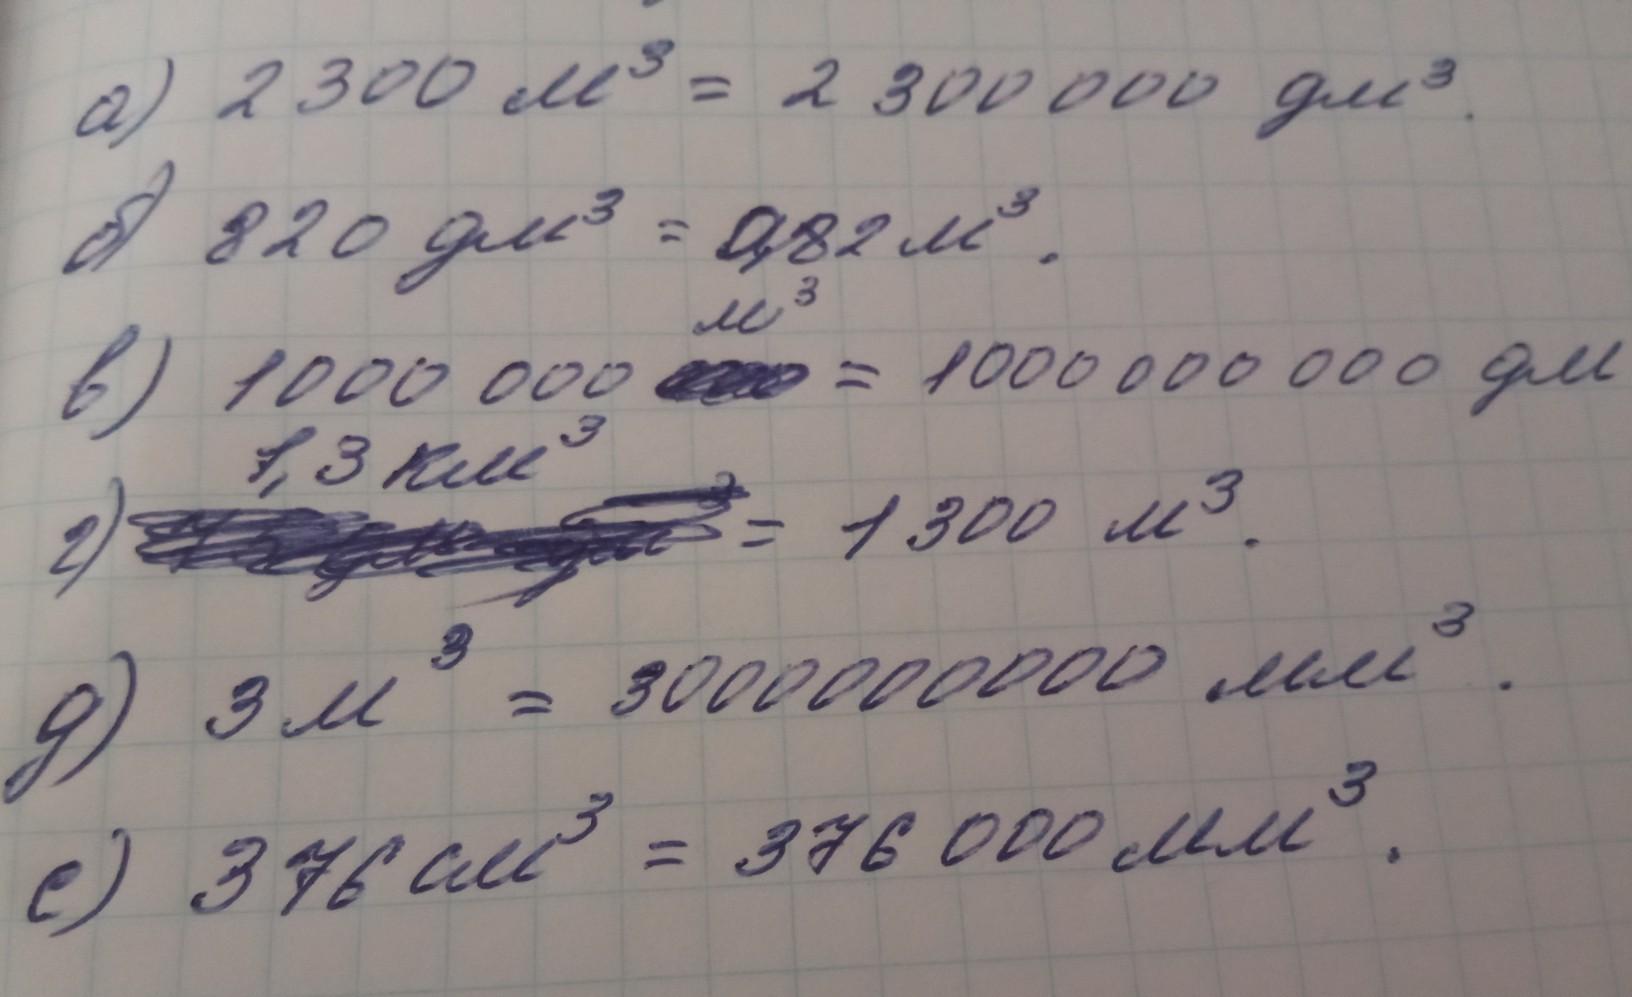 а) 2300 м³ = 2 300 000 дм³.
б) 820 дм³ = 0,82 м³.
в) 1000 000 м³ = 1000 000 000 дм
г) 1,3 км³ = 1300 м³.
д) 3 м³ = 3000000000 мм³.
е) 376 см³ = 376 000 мм³.